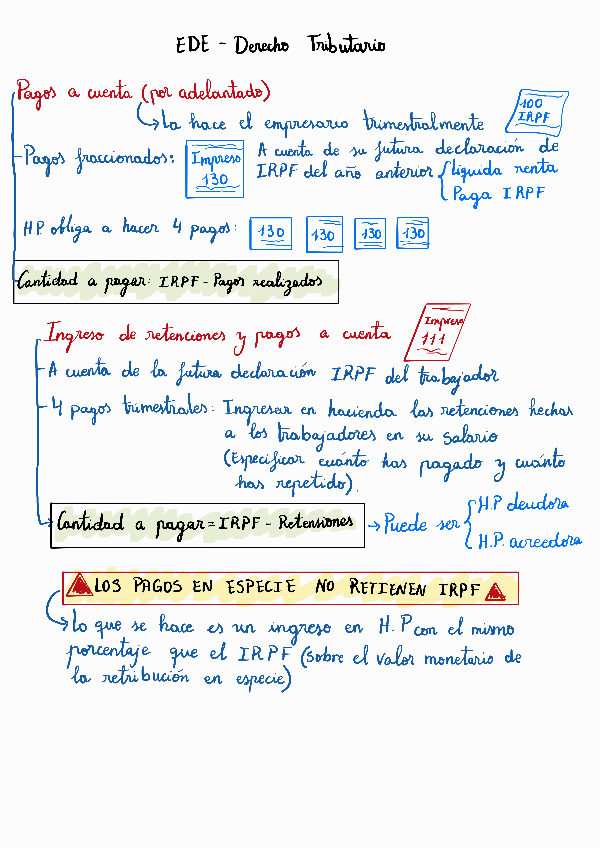 EDE - Derecho Tributario
Pagos a cuenta (por adelantado)
La hace el empresario trimestralmente
100
IRPF
- Pagos fraccionados:
Impreso
130
A cuenta de su futura declaración de
IRPF del año anterior
liquida renta
Paga IRPF
HP obliga a hacer 4 pagos:
130
130
130
130
Cantidad a pagar: IRPF - Pagos realizados
Ingreso de retenciones y pagos a cuenta
Impreso
111
- A cuenta de la futura declaración IRPF del trabajador
- 4 pagos trimestrales: Ingresar en hacienda las retenciones hechas
a los trabajadores en su salario
(Especificar cuánto has pagado y cuánto
has repetido).
Cantidad a pagar = IRPF - Retensiones
→ Puede ser
H.P deudora
H.P. acreedora
LOS PAGOS EN ESPECIE NO RETIENEN IRPF
Lo que se hace es un ingreso en H.P con el mismo
porcentaje que el IRPF (sobre el valor monetario de
la retribución en especie)